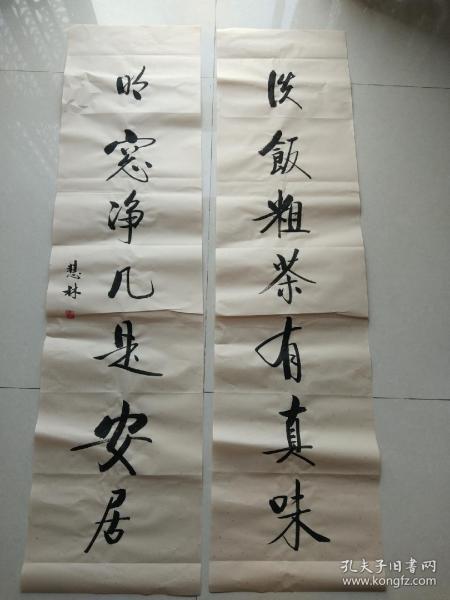 淡飯粗茶有真味
明窓净几是安居
慧林
孔夫子旧书网
www.kongfz.com